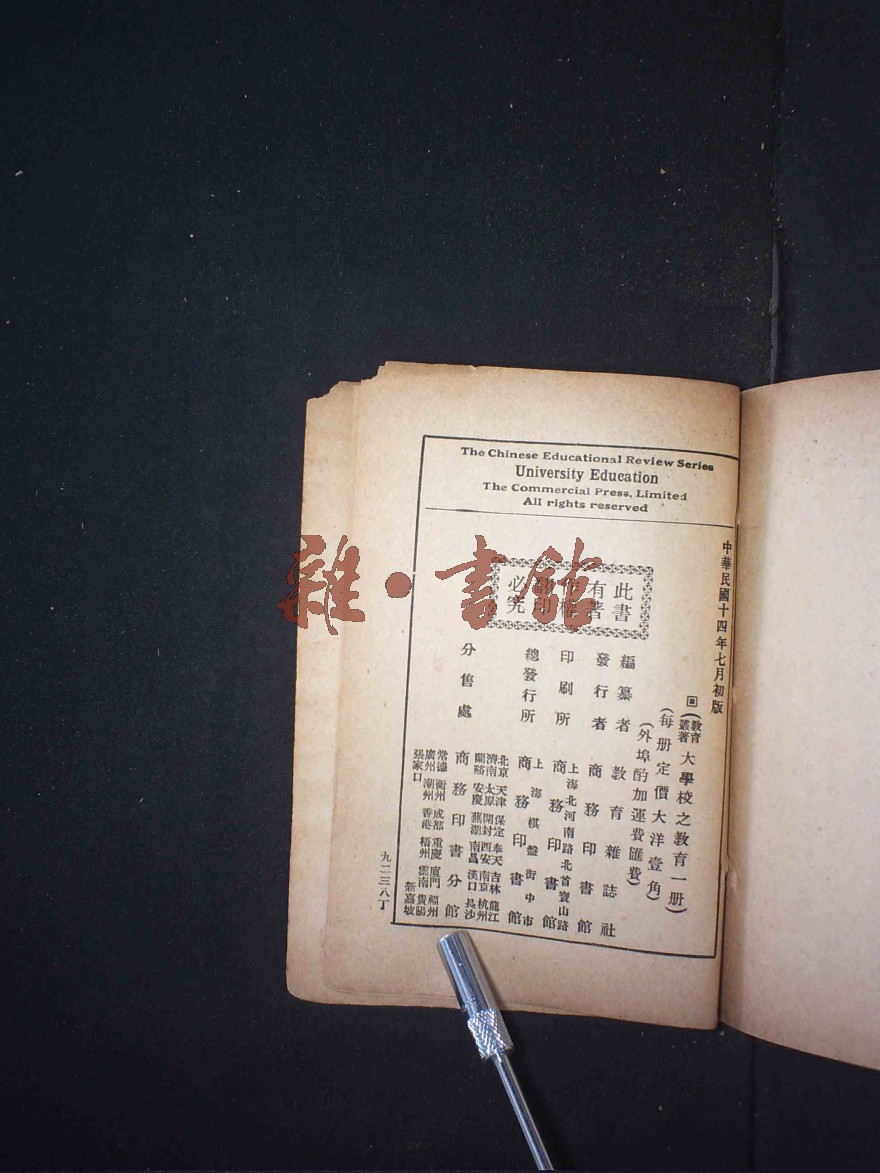 The Chinese Educational Review Series
University Education
The Commercial Press, Limited
All rights reserved
中華民國十四年七月初版
回(教育叢著大學校之教育一册)
(每册定價大洋壹角)
(外埠酌加運費匯費)
此書
有著
作權
翻印
必究
編纂者 教育雜誌社
發行者 商務印書館
上海北河南路北首寶山路
印刷所 商務印書館
上海棋盤街中市
總發行所 商務印書館
分售處 商務印書分館
北京 天津 保定 奉天 吉林 龍江
濟南 太原 開封 西安 南京 杭州
蘭谿 安慶 蕪湖 南昌 漢口 長沙
常德 衡州 成都 重慶 廈門 福州
廣州 潮州 香港 梧州 雲南 貴陽
張家口 新嘉坡
九二三八丁
雜·書館